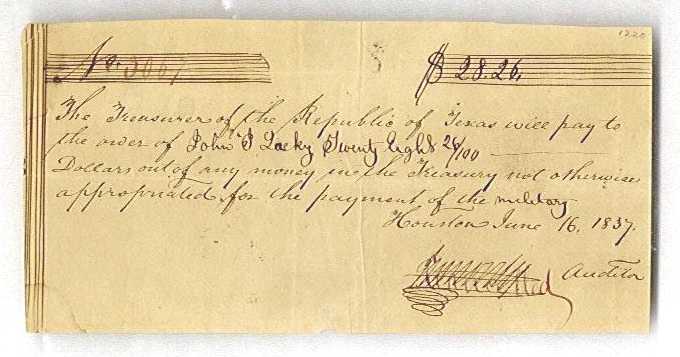 1220
No. 3667
$ 28.26.
The Treasurer of the Republic of Texas will pay to
the order of John T Lacky Twenty Eight 26/100
Dollars out of any money in the Treasury not otherwise
appropriated for the payment of the military
Houston June 16, 1837.
Auditor